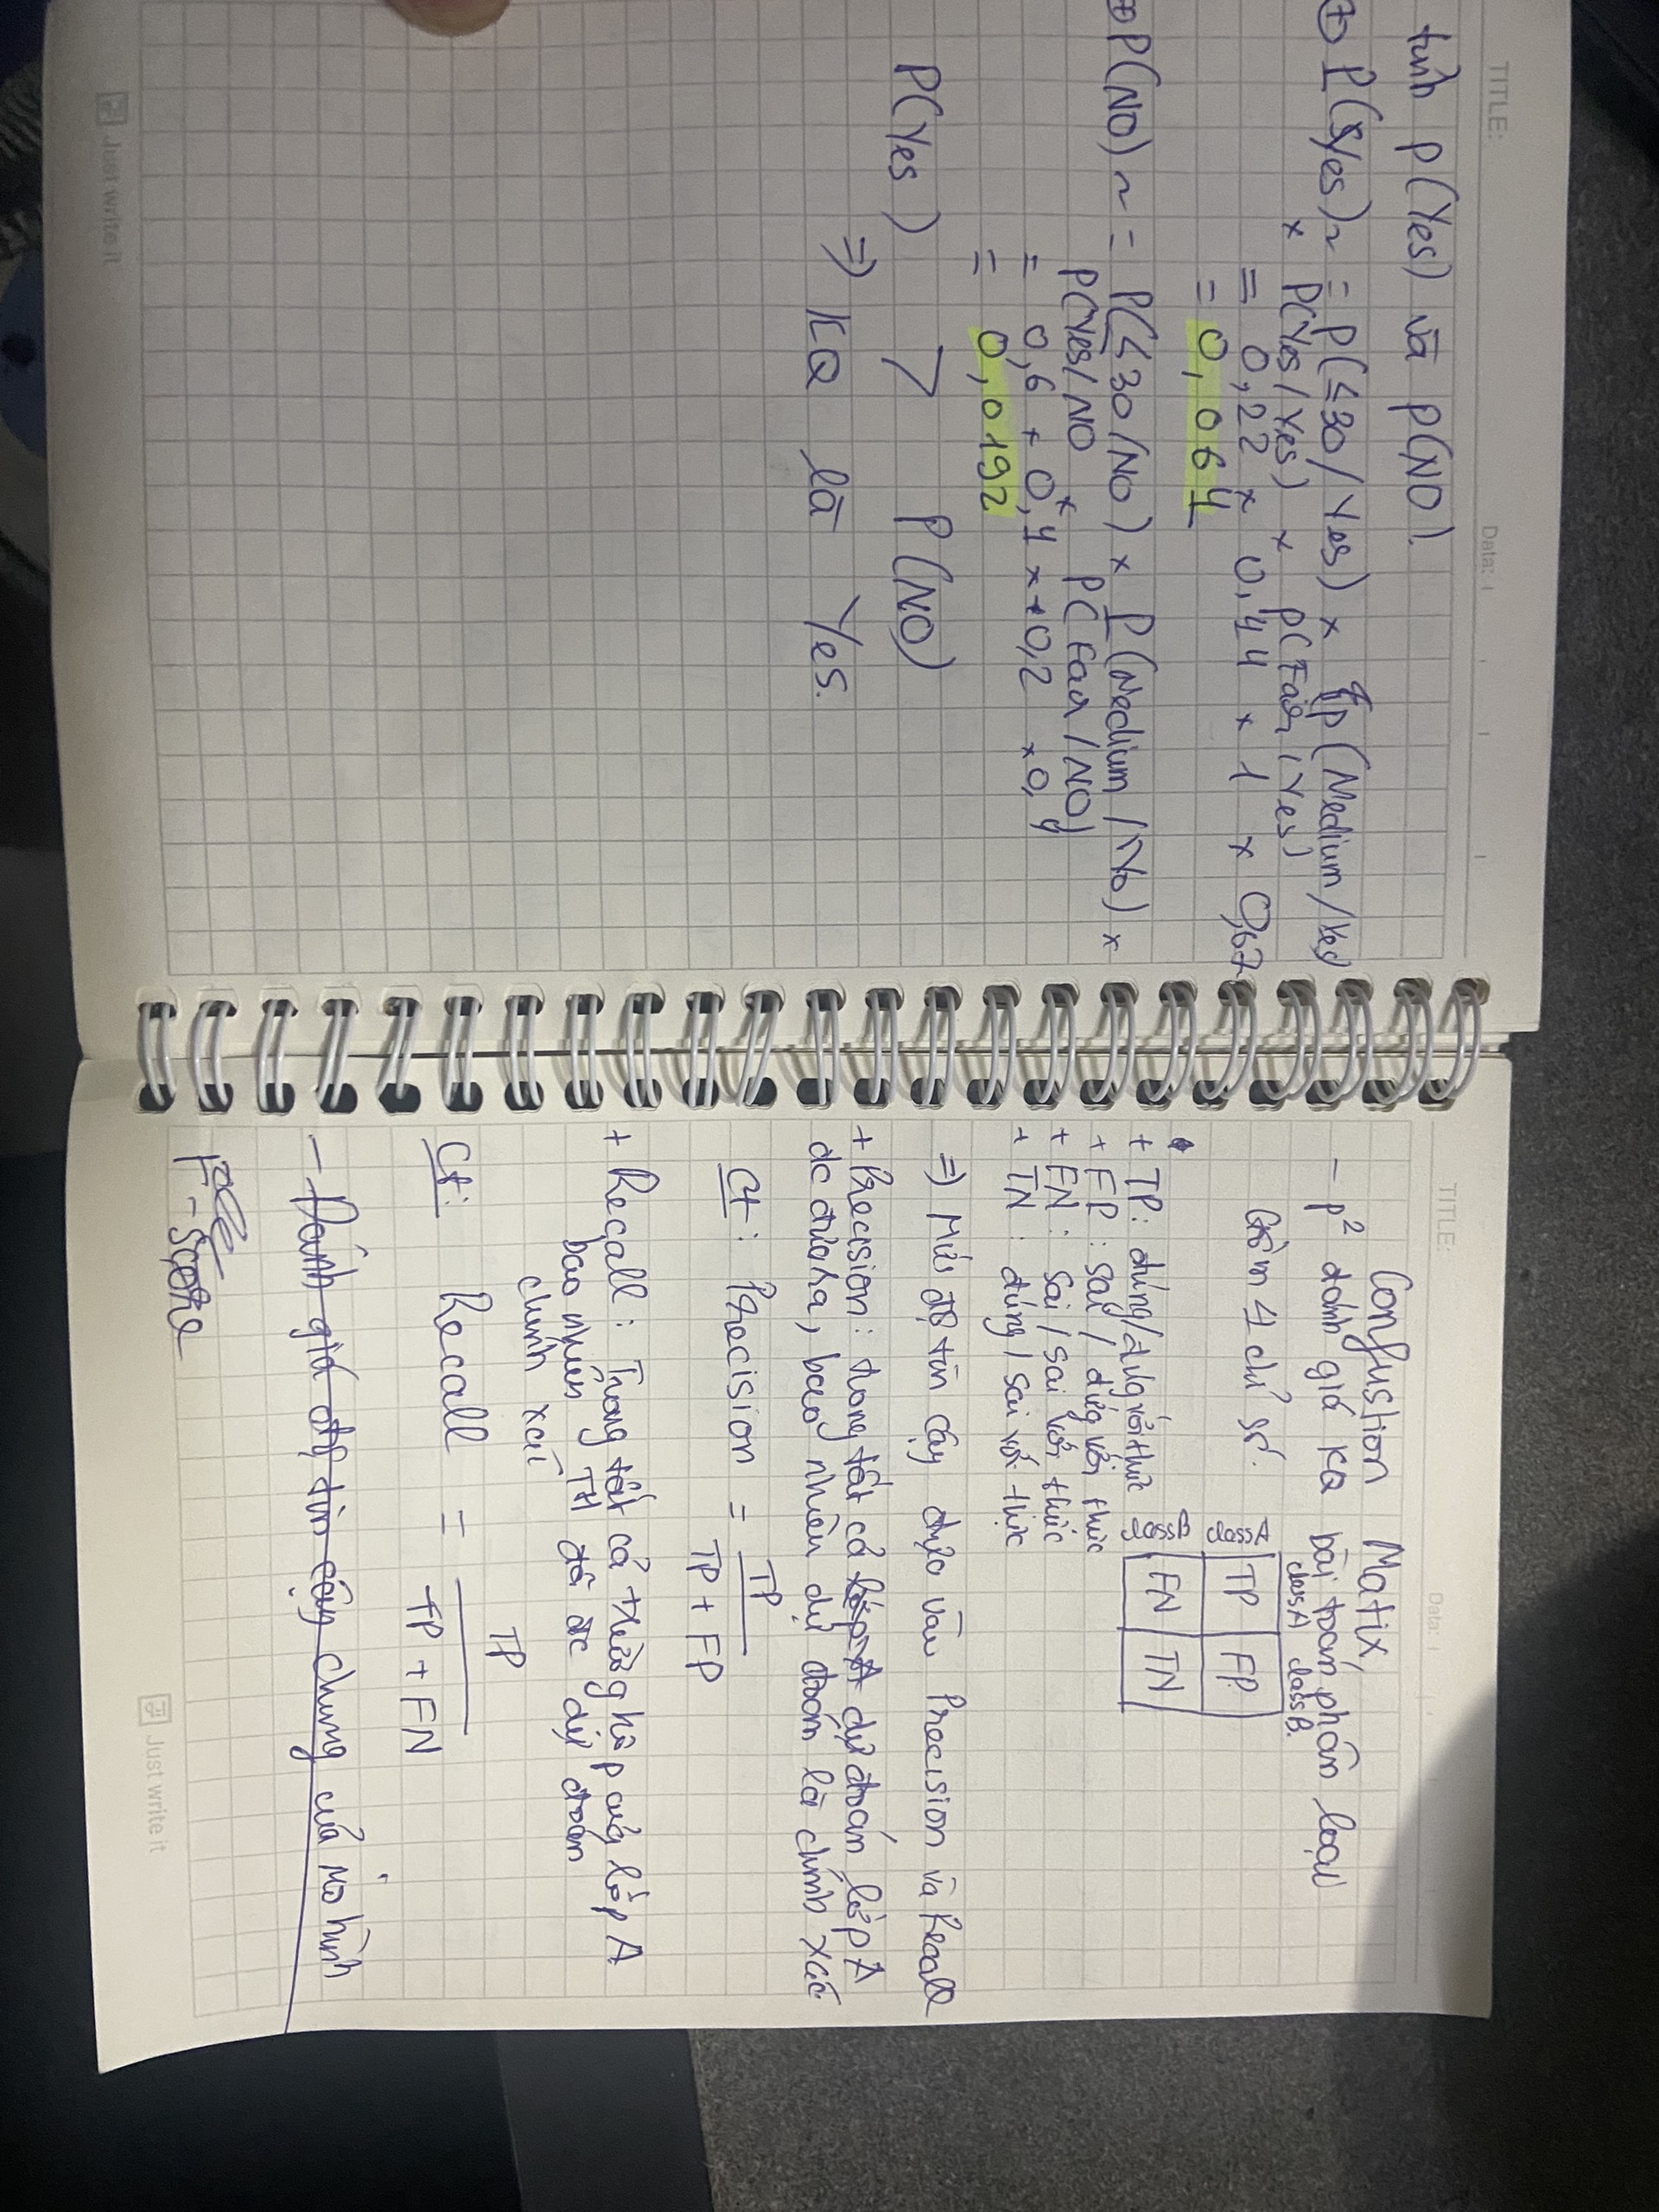 TITLE:
Data:
tính P(Yes) và P(NO).
+ P(Yes)~ = P(≤30/Yes) x P(Medium/Yes)
x P(Yes/Yes) x P(Fair/Yes)
= 0,22 x 0,44 x 1 x 0,67
= 0,064
+ P(NO)~ = P(≤30/NO) x P(Medium/No) x
P(Yes/NO x P(Fair/NO)
= 0,6 x 0,4 x 0,2 x 0,4
= 0,0192
P(Yes) > P(NO)
⇒ KQ là Yes.
Just write it
TITLE:
Data:
Confustion Matix,
- p² đánh giá KQ bài toán phân loại
classA classB.
Gồm 4 chỉ số.
classA TP FP
classB FN TN
+ TP: đúng/đúg với thức
+ FP: sai / đúg với thức
+ FN: Sai/sai với thức
+ TN: đúng/sai với thực
⇒ Mức độ tin cậy dựa vào Precision và Recall
+ Precision: trong tất cả dự đoán lớp A
đc đưa ra, bao nhiêu dự đoán là chính xác
Ct: Precision = TP
TP + FP
+ Recall: Trong tất cả trường hợp của lớp A
bao nhiêu TH đã đc dự đoán
chính xác
Ct: Recall = TP
TP + FN
- Đánh giá độ tin cậy chung của mô hình
F-Score
Just write it